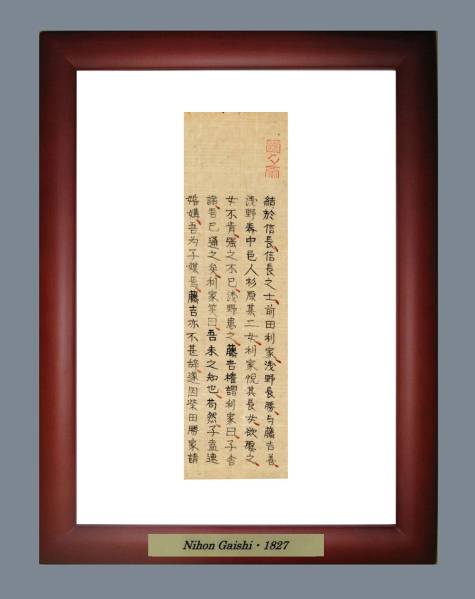 結於信長信長之士前田利家浅野長勝与藤吉善
浅野養中邑人杉原某二女利家悦其長女欲娶之
女不肯強之不已浅野患之藤吉権謂利家曰子舎
諸吾已通之矣利家笑曰吾未之知也苟然子盍速
婚媾吾為子媒焉藤吉亦不甚辞遂因柴田勝家請
Nihon Gaishi · 1827